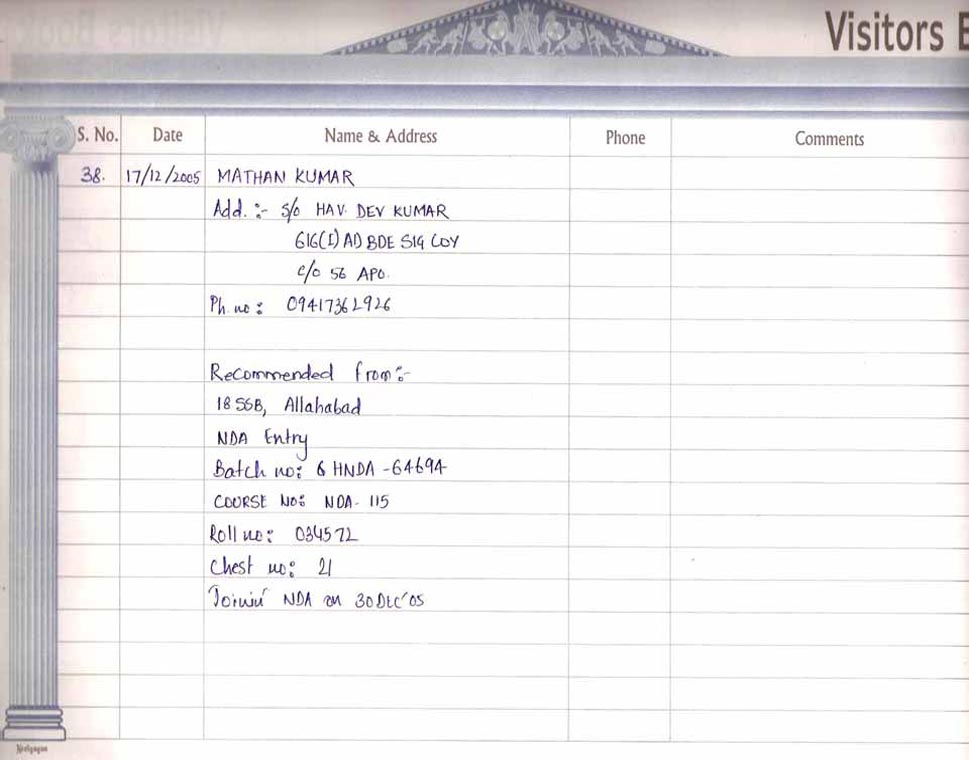 Visitors B
S. No. Date Name & Address Phone Comments
38. 17/12/2005 MATHAN KUMAR
Add. :- S/o HAV. DEV KUMAR
616(I) AD BDE SIG COY
c/o 56 APO.
Ph. no : 09417362926
Recommended from :-
18 SSB, Allahabad
NDA Entry
Batch no: 6 HNDA - 64694
COURSE NO: NDA - 115
Roll no : 034572
Chest no : 21
NDA on 30 DEC' 05
Neelgagan